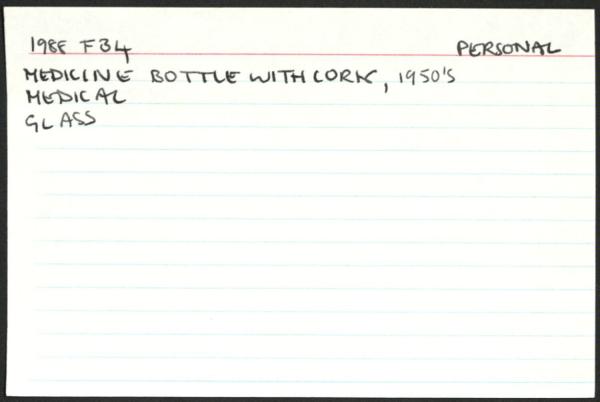 1988 F34 PERSONAL
MEDICINE BOTTLE WITH CORK, 1950'S
MEDICAL
GLASS